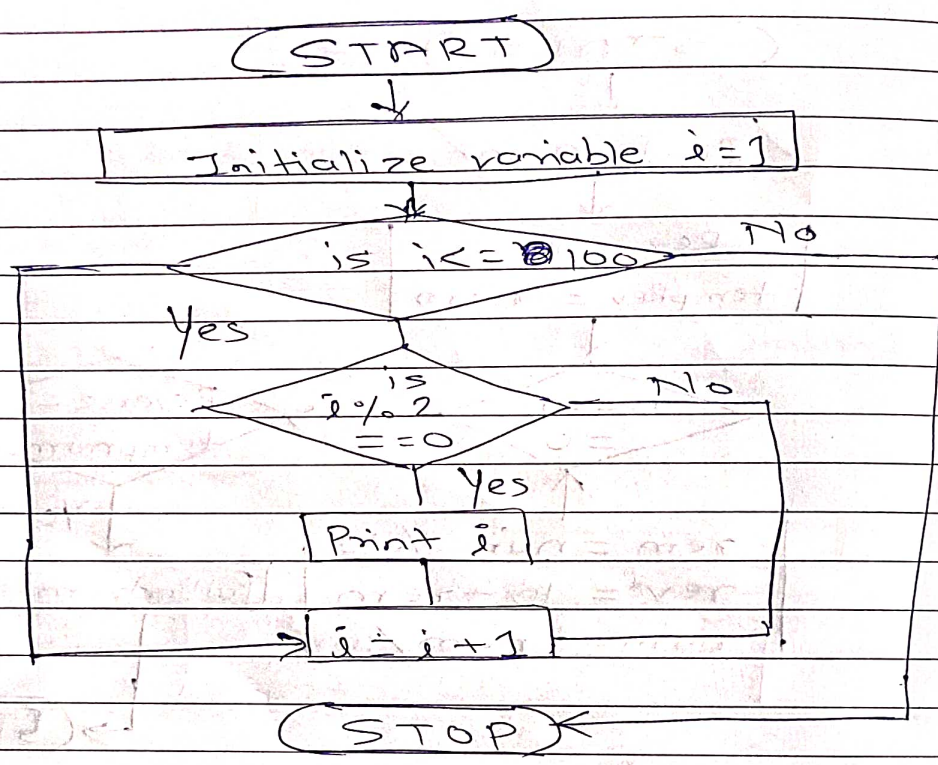 START
Initialize variable i=1
is i<= 100
No
Yes
is
i%2
==0
No
Yes
Print i
i=i+1
STOP